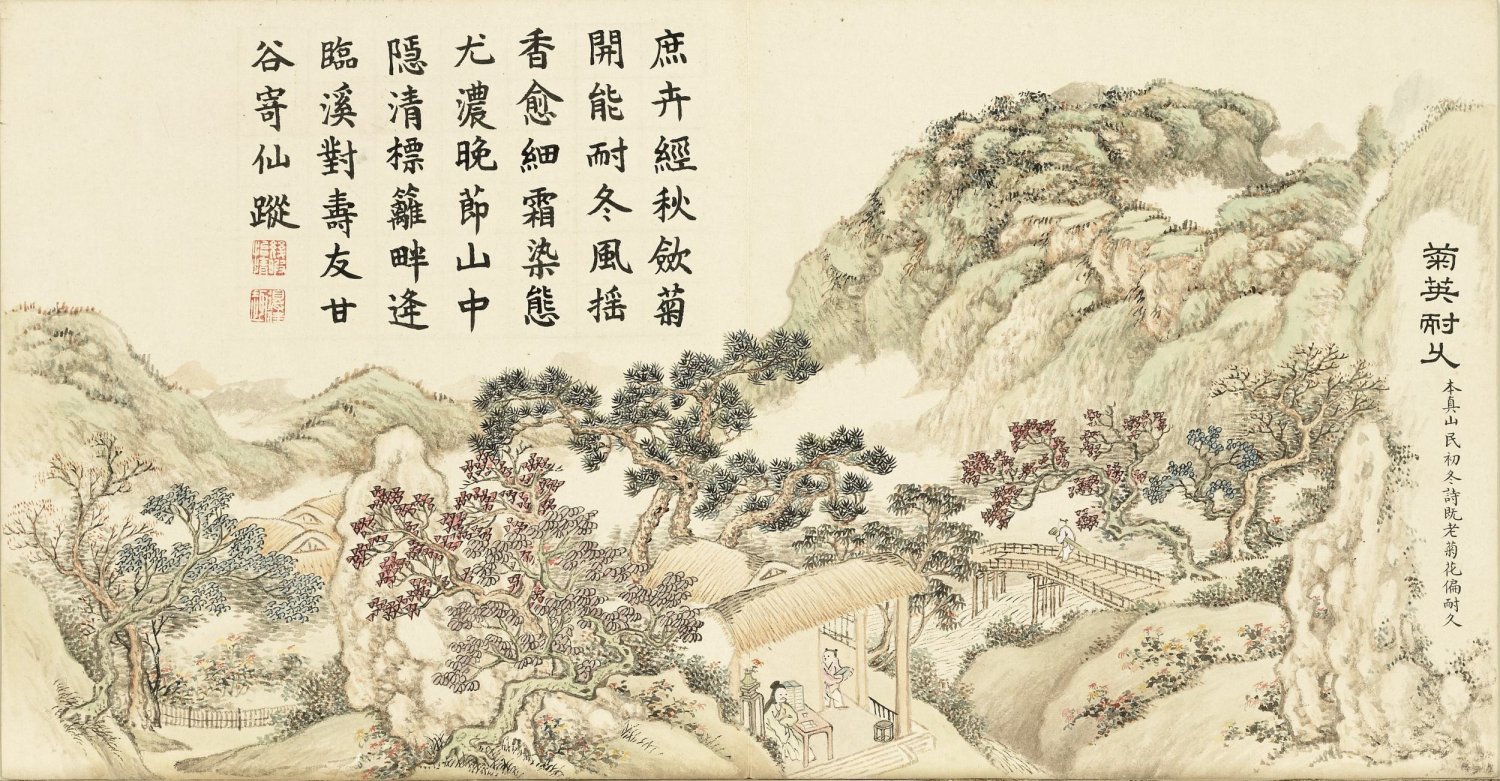 菊英耐久
本真山民初冬詩既老菊花偏耐久
庶卉經秋斂菊
開能耐冬風揺
香愈細霜染態
尤濃晚節山中
隱清標籬畔逢
臨溪對壽友甘
谷寄仙蹤